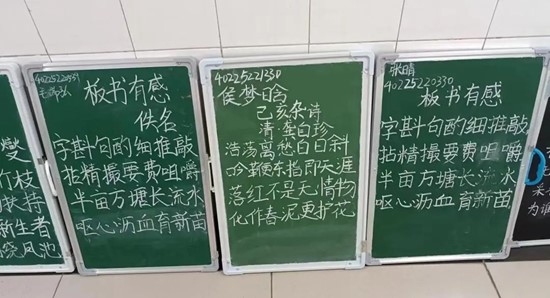 燮
枝
扶持
新生者
绕凤池
板书有感
佚名
字斟句酌细推敲
拈精撮要费咀嚼
半亩方塘长流水
呕心沥血育新苗
40225221330
侯梦晗
己亥杂诗
清 龚自珍
浩荡离愁白日斜
吟鞭东指即天涯
落红不是无情物
化作春泥更护花
张晴
40225220330
板书有感
字斟句酌细推敲
拈精撮要费咀嚼
半亩方塘长流水
呕心沥血育新苗
采
为